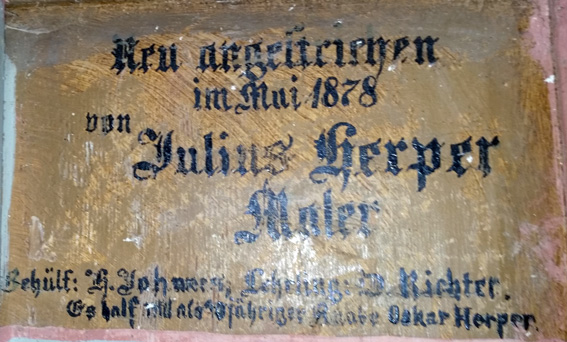 Neu angestrichen
im Mai 1878
von
Julius Herper
Maler
Gehülf: H. Lehrling: Richter.
Es half als jähriger Knabe Oskar Herper.